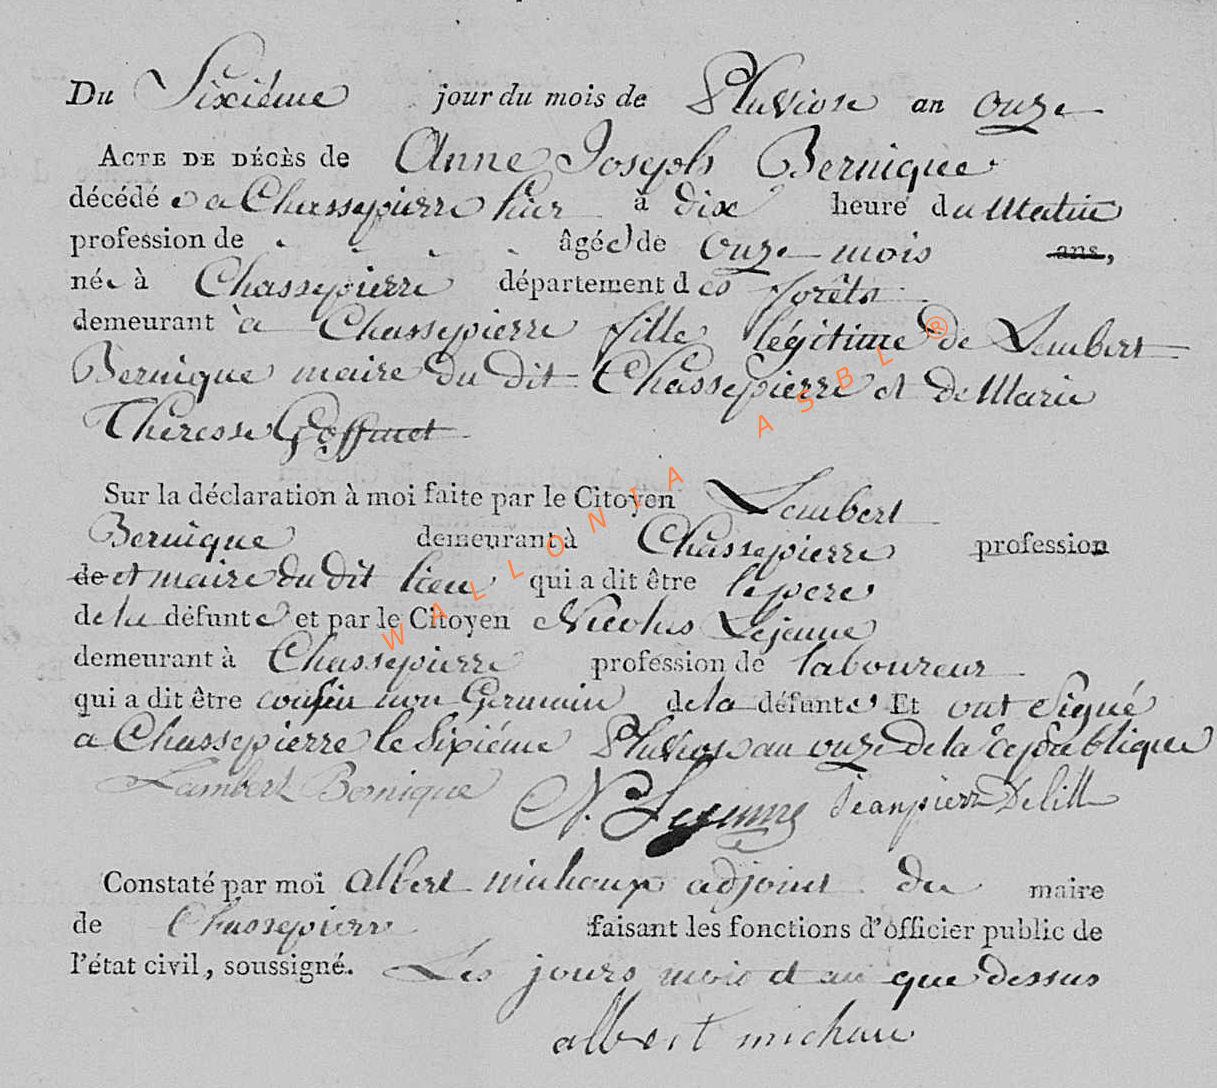 Du Sixiéme jour du mois de Pluviose an onze
ACTE DE DÉCÈS de Anne Joseph Bernique
décédé e a Chassepierre hier à dix heure du Matin
profession de âgée de onze mois ans,
née à Chassepierre département des forêts
demeurant à Chassepierre fille légitime de Lambert
Bernique maire du dit Chassepierre et de Marie
Theresse Goffinet
Sur la déclaration à moi faite par le Citoyen Lambert
Bernique demeurant à Chassepierre profession
de et maire du dit lieu qui a dit être le pere
de la défunte et par le Citoyen Nicolas Lejeune
demeurant à Chassepierre profession de laboureur
qui a dit être cousin non Germain de la défunte Et ont Signé
a Chassepierre le Sixiéme Pluviose an onze de la republique
Lambert Bernique N. Lejeune Jeanpierre Delill
Constaté par moi albert michaux adjoint du maire
de Chassepierre faisant les fonctions d'officier public de
l'état civil, soussigné. Les jours mois et an que dessus
albert michau
WALLONIA ASBL ®